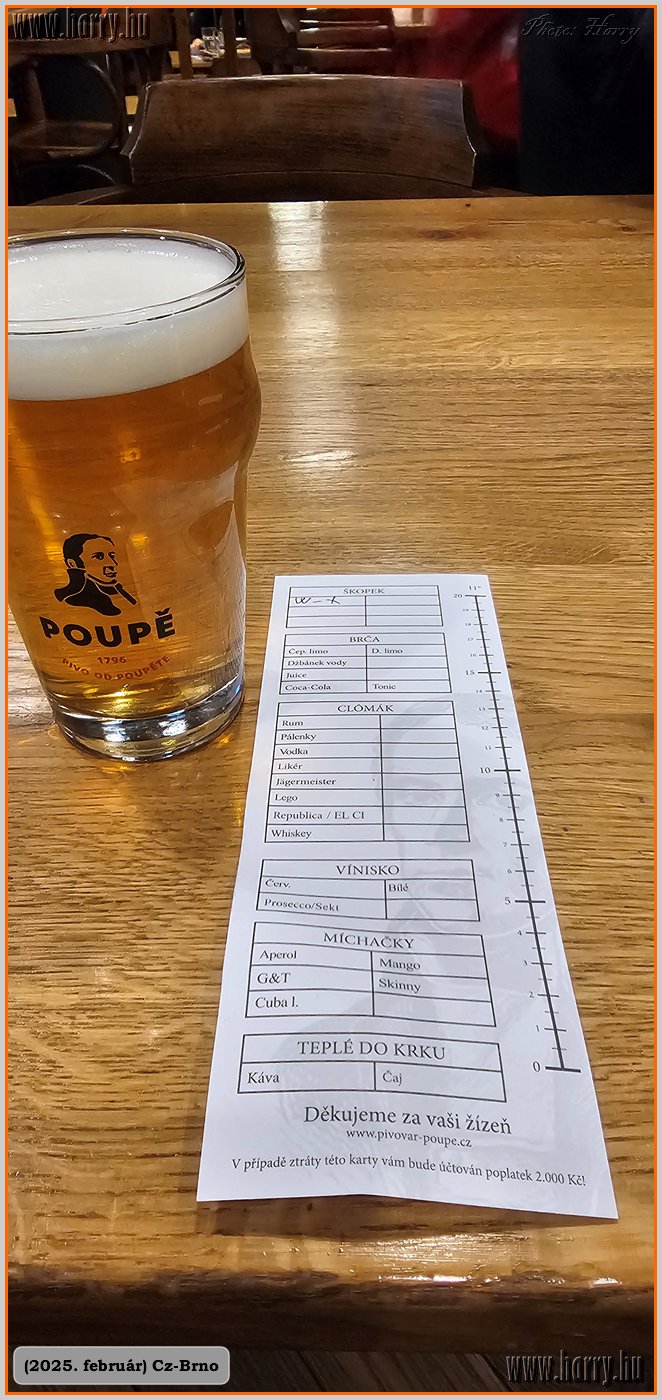 www.harry.hu
Photo: Harry
POUPĚ
1796
PIVO OD POUPĚTE
ŠKOPEK
BRČA
Čep. limo D. limo
Džbánek vody
Juice
Coca-Cola Tonic
CLOMÁK
Rum
Pálenky
Vodka
Likér
Jägermeister
Lego
Republica / EL CI
Whiskey
VÍNISKO
Červ. Bílé
Prosecco/Sekt
MÍCHAČKY
Aperol Mango
G&T Skinny
Cuba l.
TEPLÉ DO KRKU
Káva Čaj
11°
20
19
18
17
16
15
14
13
12
11
10
9
8
7
6
5
4
3
2
1
0
Děkujeme za vaši žízeň
www.pivovar-poupe.cz
V případě ztráty této karty vám bude účtován poplatek 2.000 Kč!
(2025. február) Cz-Brno
www.harry.hu